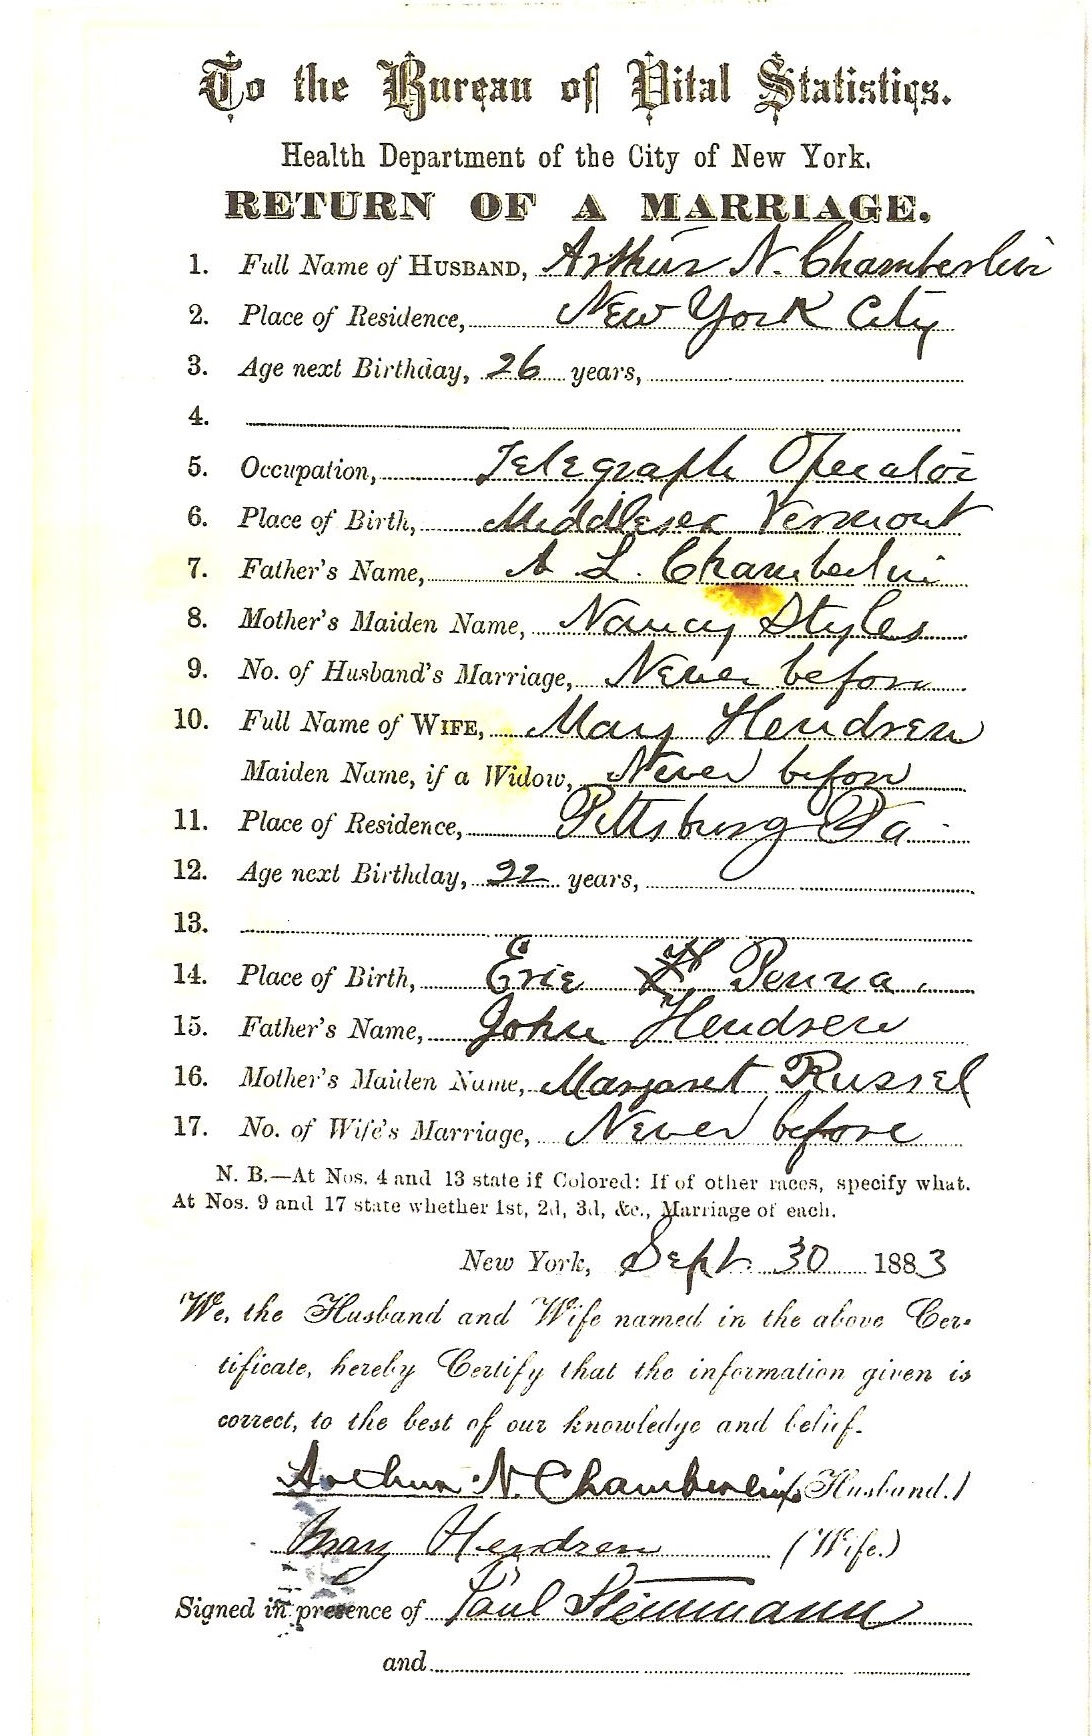 To the Bureau of Vital Statistics.
Health Department of the City of New York.
RETURN OF A MARRIAGE.
1. Full Name of HUSBAND, Arthur N. Chamberlin
2. Place of Residence, New York City
3. Age next Birthday, 26 years,
4.
5. Occupation, Telegraph Operator
6. Place of Birth, Middlesex Vermont
7. Father's Name, A. L. Chamberlin
8. Mother's Maiden Name, Nancy Styles
9. No. of Husband's Marriage, Never before
10. Full Name of WIFE, Mary Hendren
Maiden Name, if a Widow, Never before
11. Place of Residence, Pittsburg Pa.
12. Age next Birthday, 22 years,
13.
14. Place of Birth, Erie Penna.
15. Father's Name, John Hendren
16. Mother's Maiden Name, Margaret Russel
17. No. of Wife's Marriage, Never before
N. B.—At Nos. 4 and 13 state if Colored: If of other races, specify what.
At Nos. 9 and 17 state whether 1st, 2d, 3d, &c., Marriage of each.
New York, Sept. 30 1883
We, the Husband and Wife named in the above Cer-
tificate, hereby Certify that the information given is
correct, to the best of our knowledge and belief.
Arthur N. Chamberlin (Husband.)
Mary Hendren (Wife.)
Signed in presence of Paul
and